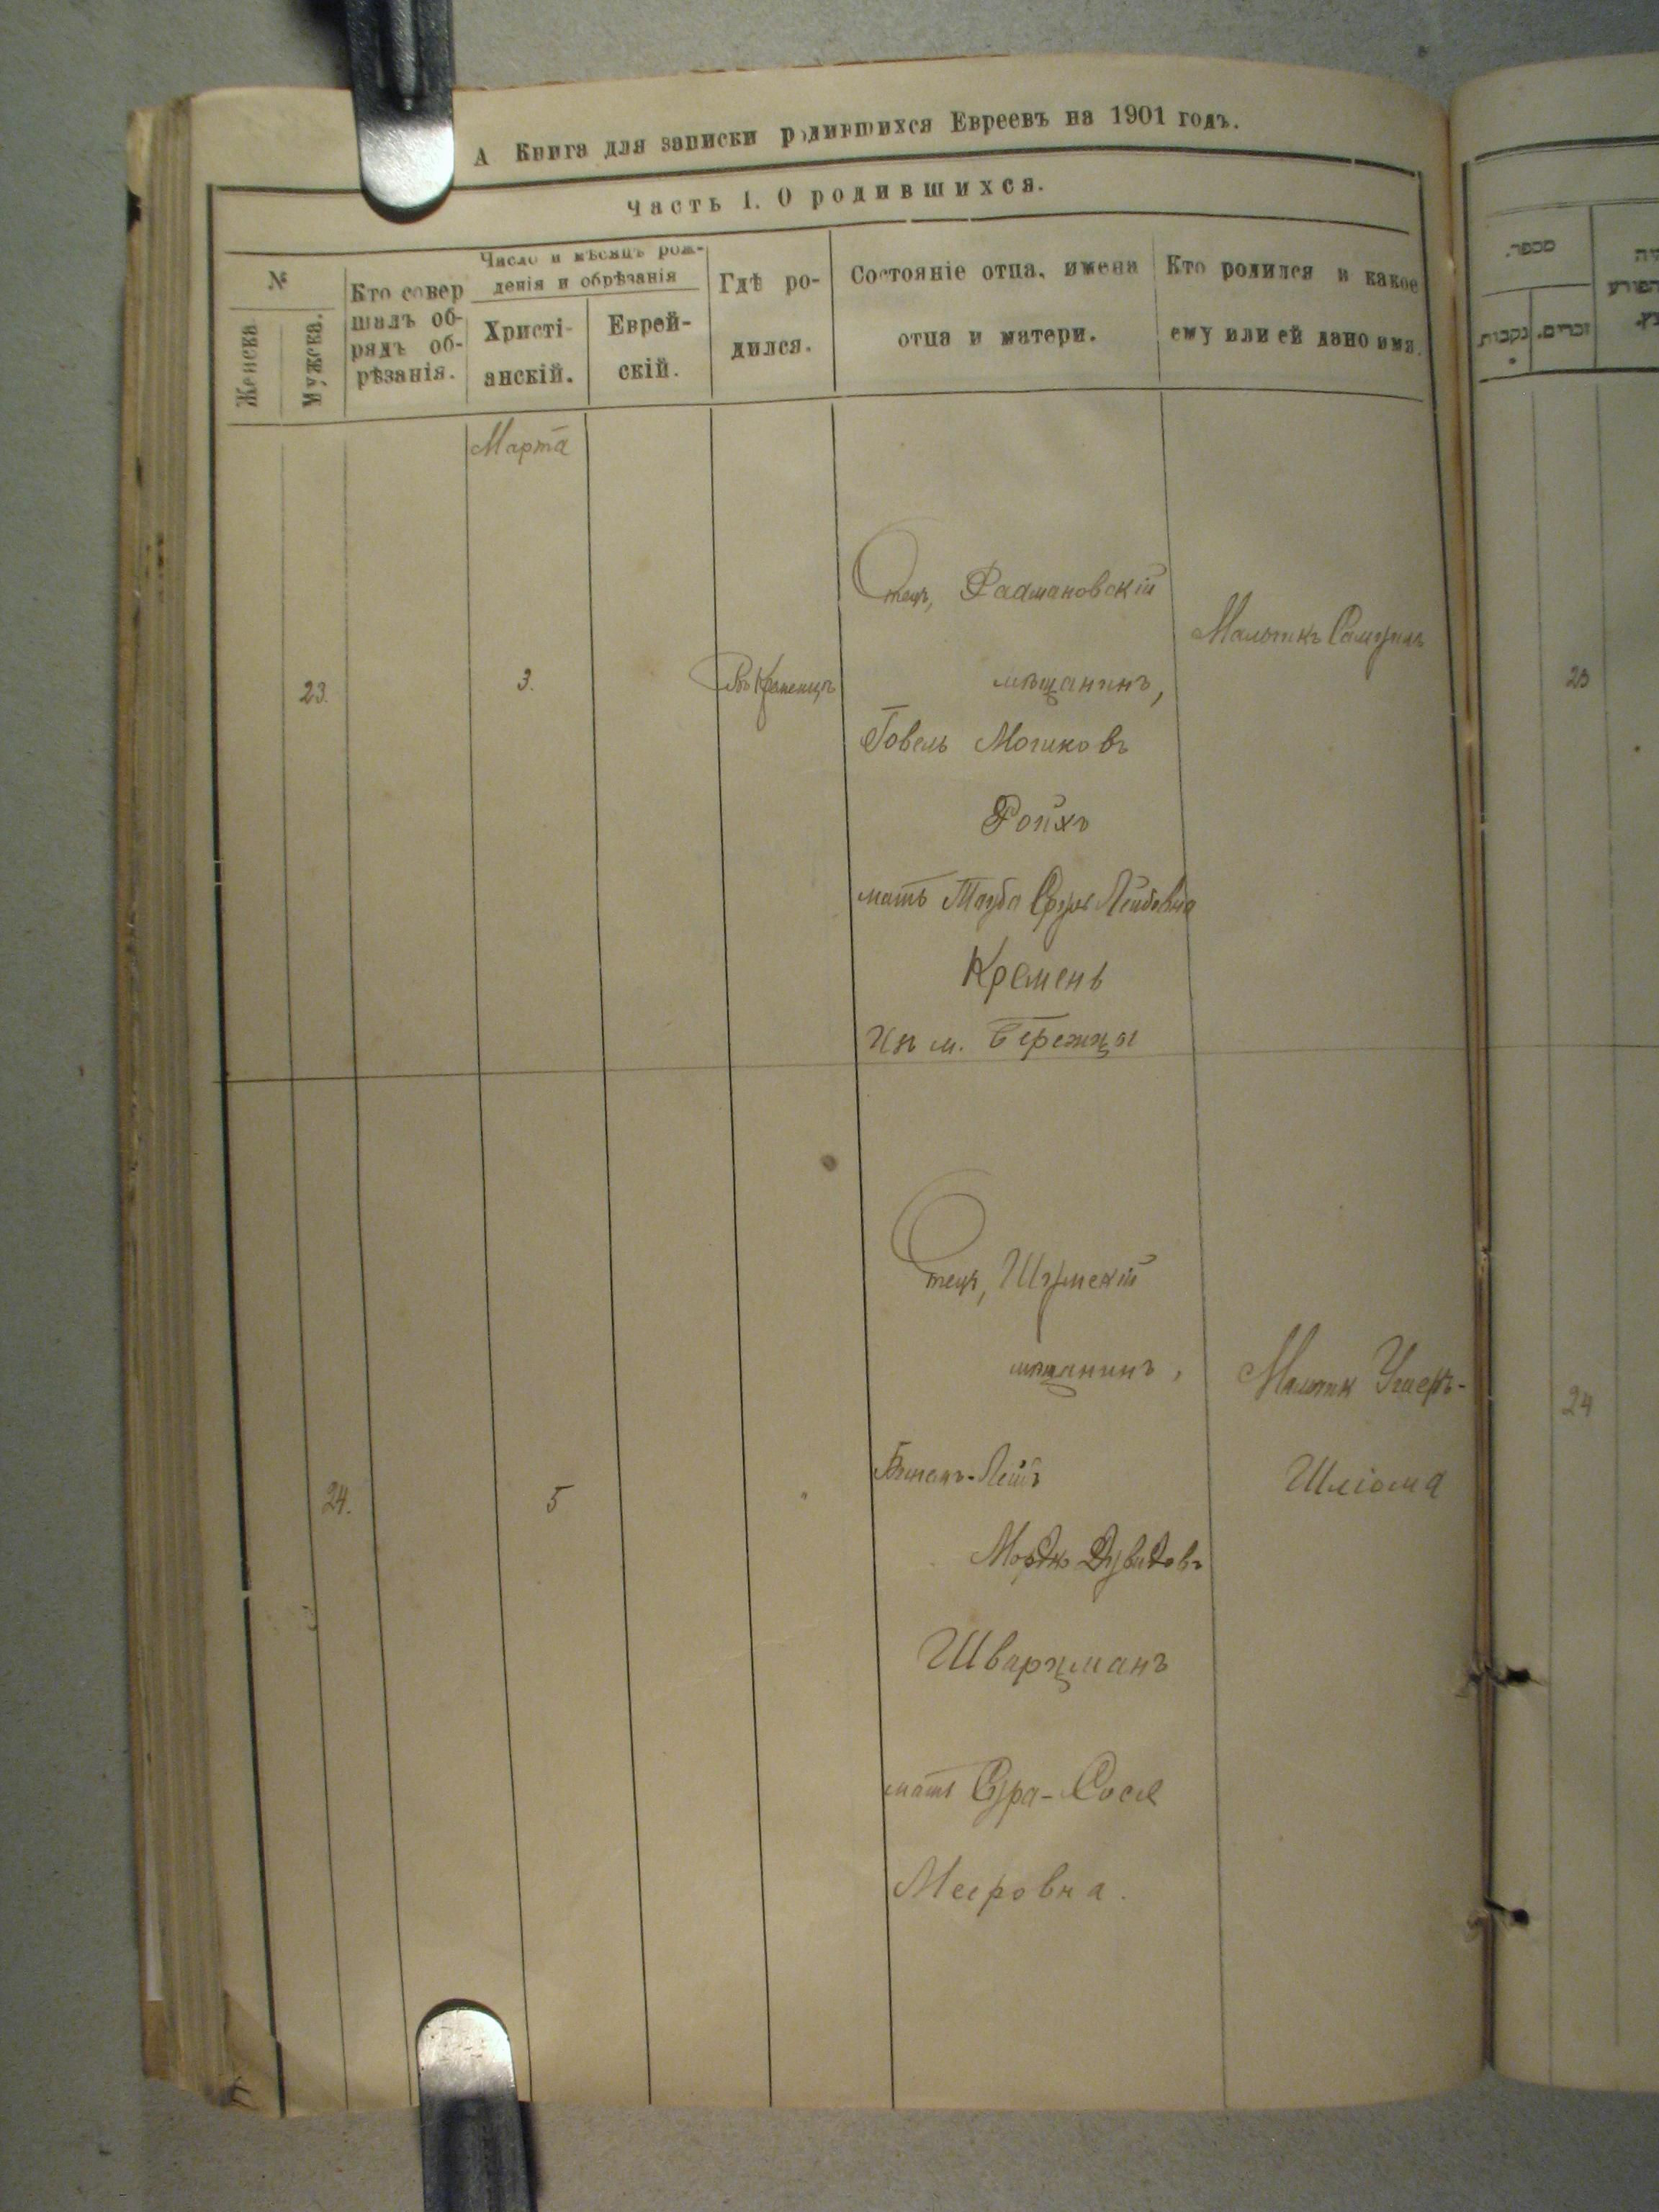 А Книга для записки родившихся Евреевъ на 1901 годъ.
Часть 1. О родившихся.
№
Женска
Мужска.
Кто совер
шалъ об-
рядъ об-
рѣзанія.
Число и мѣсяцъ рож-
денія и обрѣзанія
Христі-
анскій.
Еврей-
скій.
Гдѣ ро-
дился.
Состояніе отца, имена
отца и матери.
Кто родился и какое
ему или ей дано имя.
מספר.
נקבות
זכרים.
Марта
23.
3.
Въ Кременцѣ
Отецъ, Радмановскій
мѣщанинъ,
Говель Мошковъ
Ройхъ
мать Тауба Сура Лейбовна
Кремень
Изъ м. Бережцы
Мальчикъ Самуилъ
23
24.
5
Отецъ, Шумскій
мѣщанинъ,
Мордко Дувидовъ
Шварцманъ
мать Сура-Сося
Мееровна.
Мальчик
Шліома
24